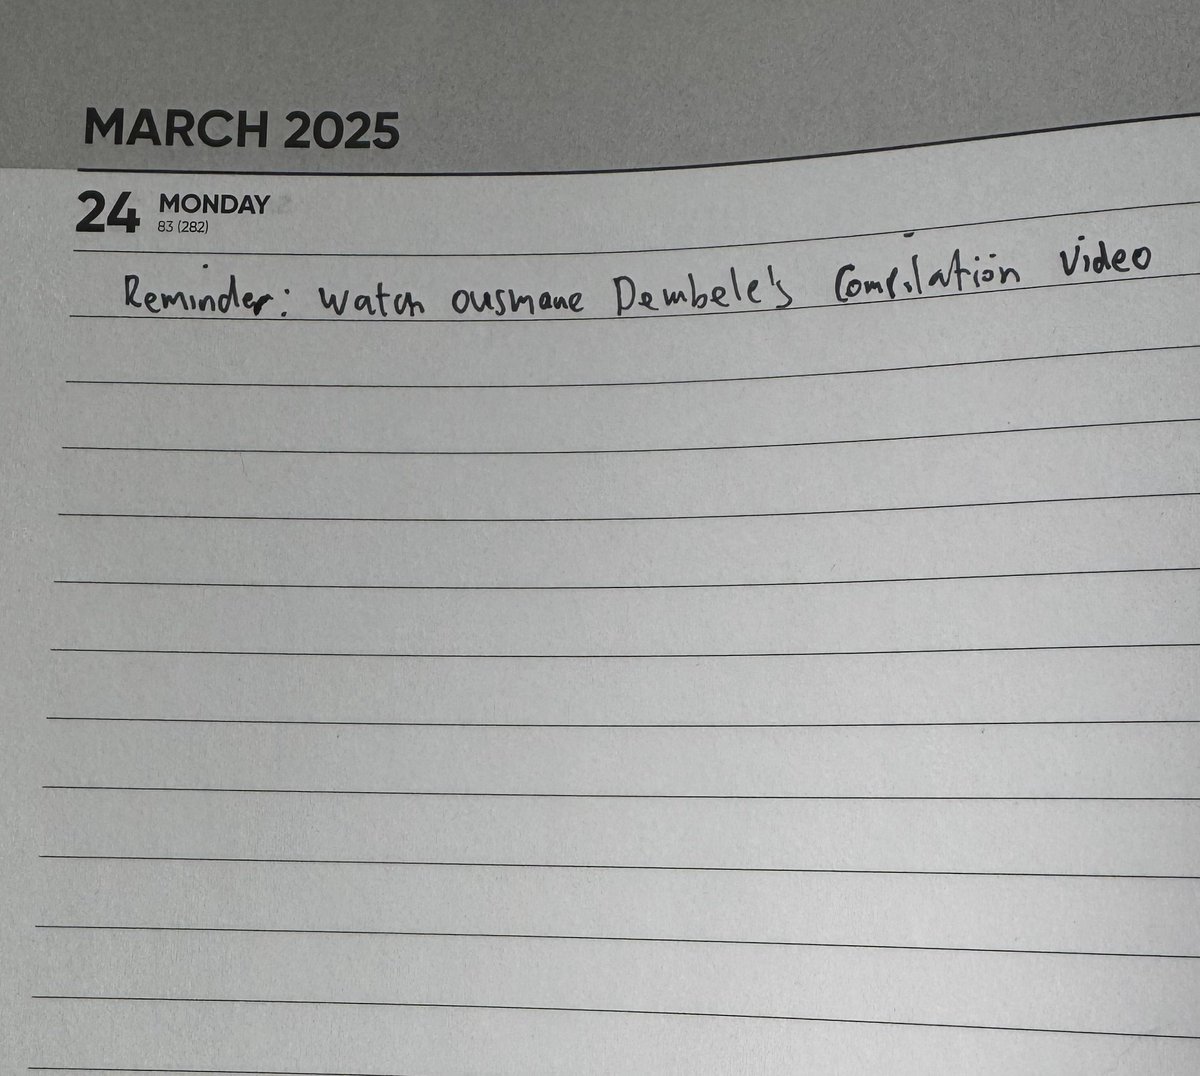 MARCH 2025
24 MONDAY
83 (282)
Reminder: Watch ousmane Dembele's Compilation Video